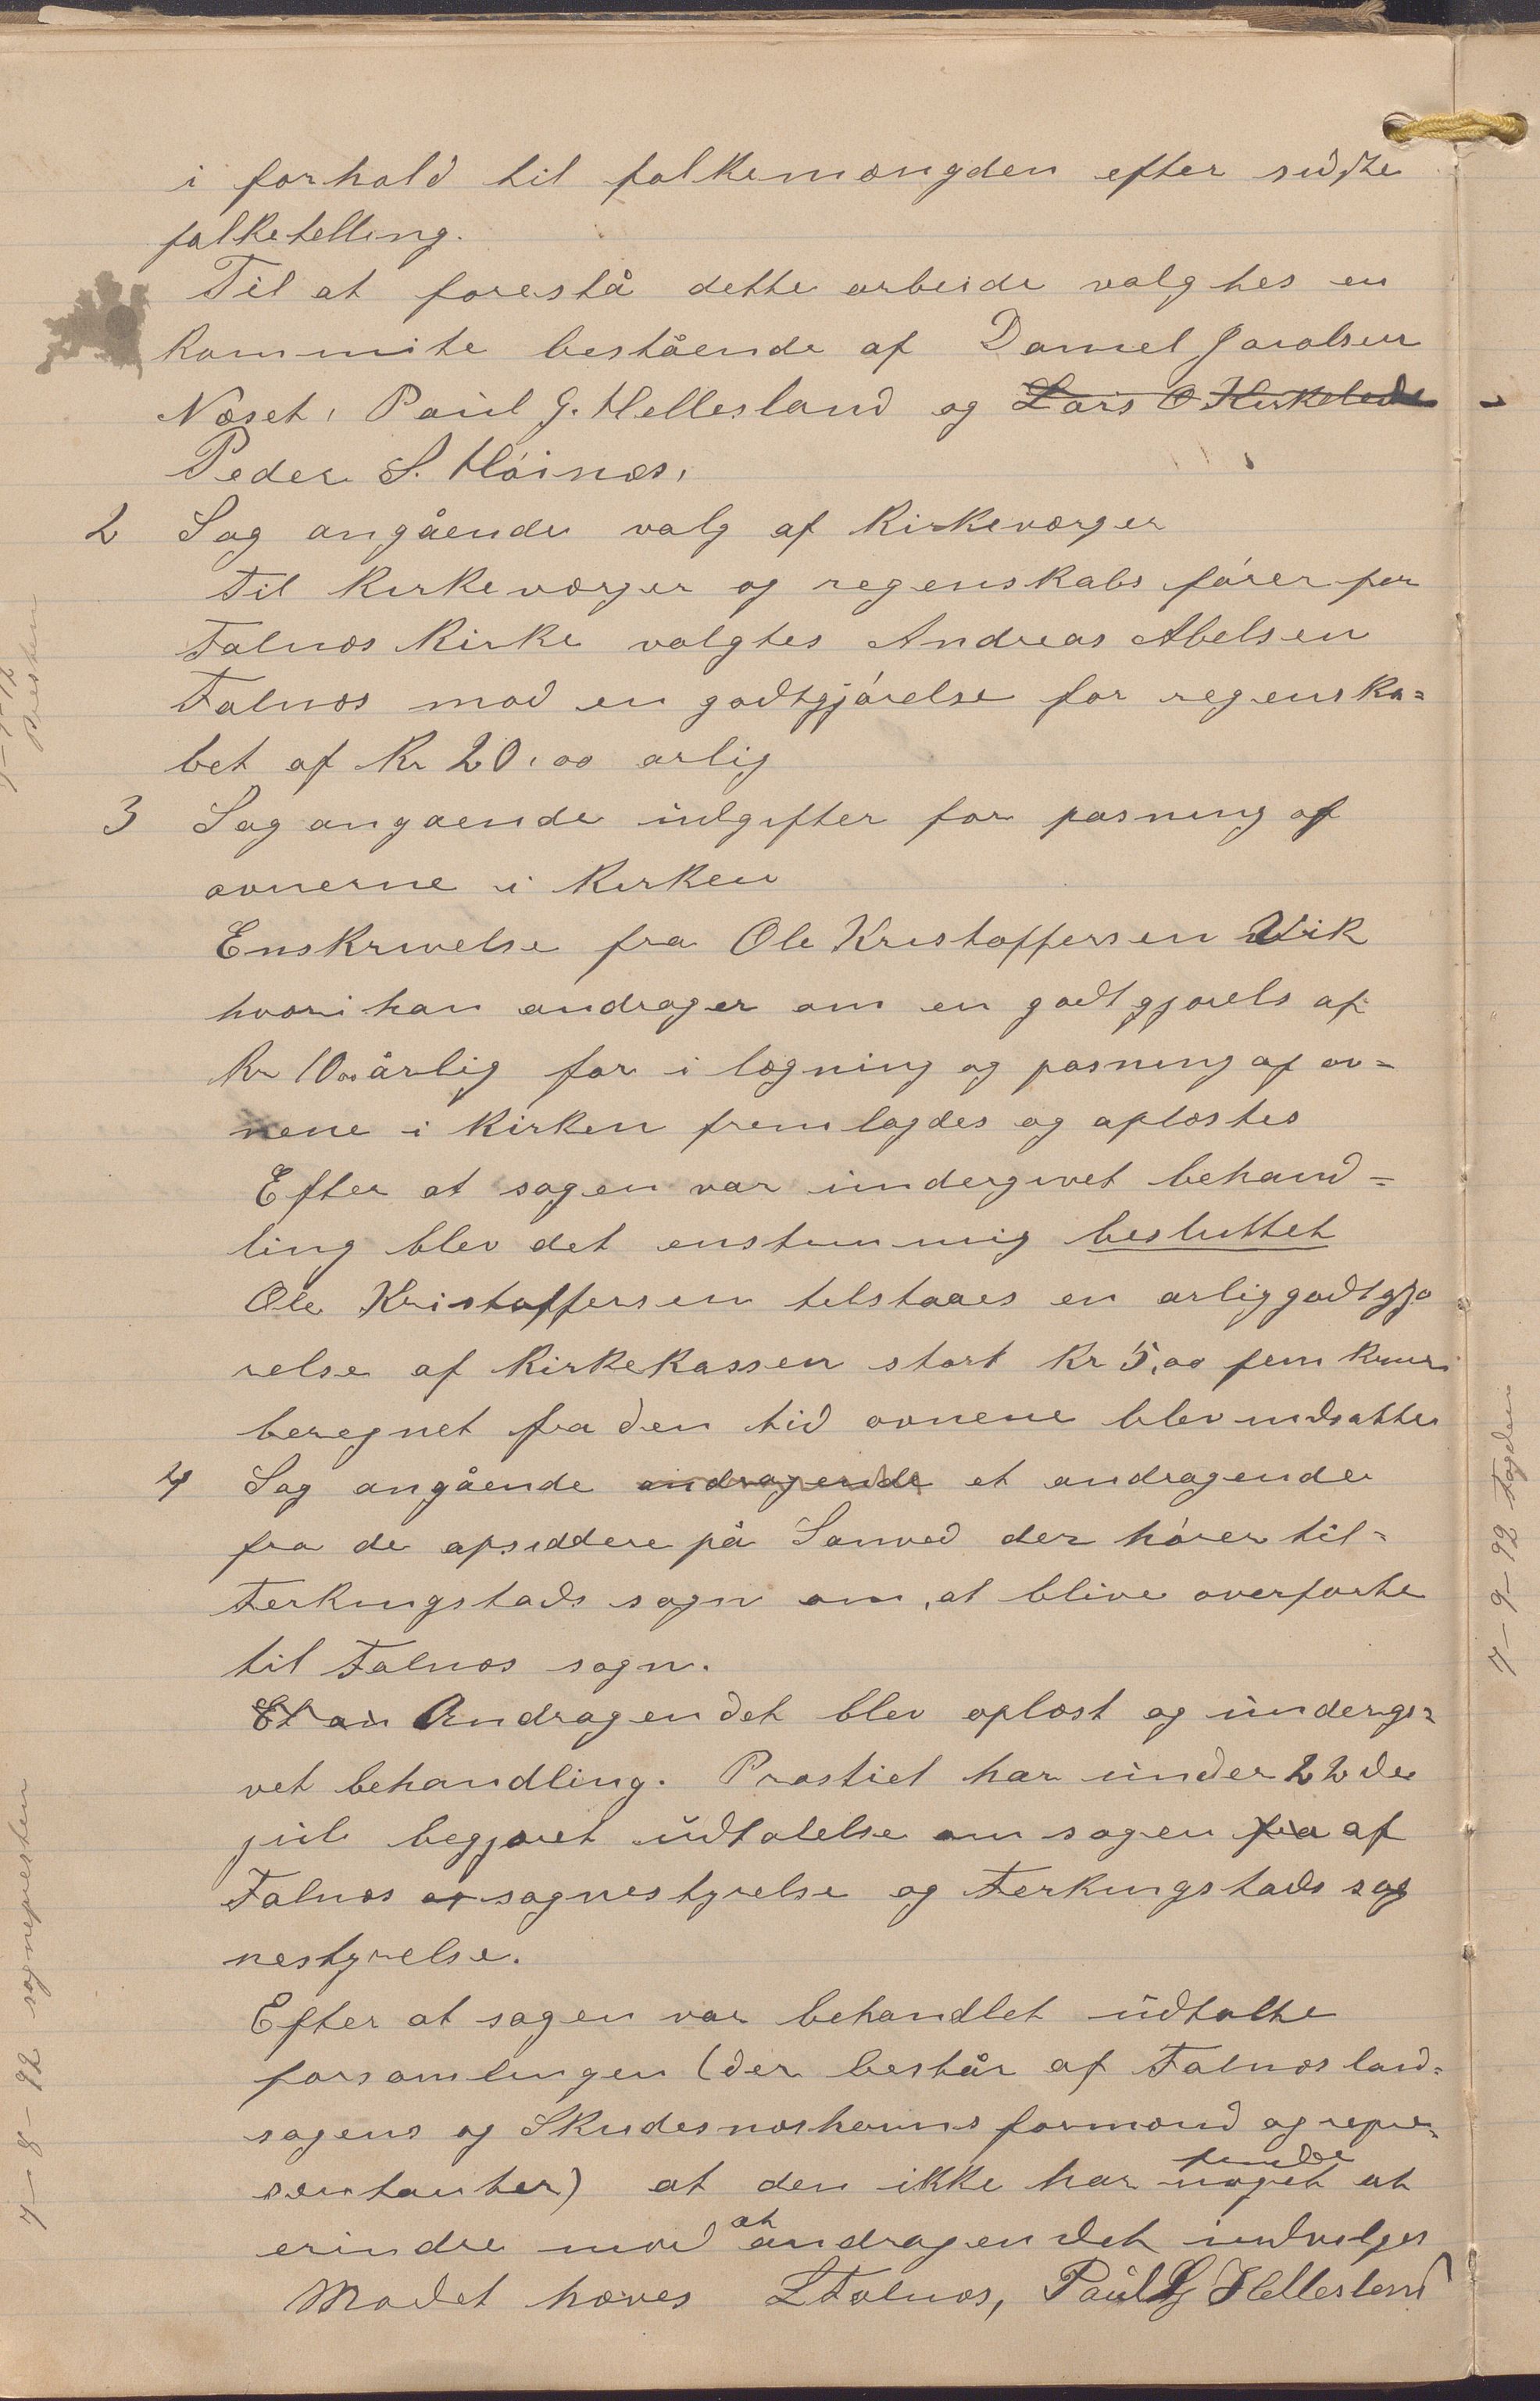 i forhold til folkemængden efter sidste
folketelling.
Til at forestå dette arbeide valgtes en
kommite bestående af Daniel Jacobsen
Næset, Paul G. Hellesland og Lars O Kirkelede
Peder S. Høinæs,
2 Sag angående valg af Kirkeværger
Til Kirkeværger og regenskabsfører for
Falnæs Kirke valgtes Andreas Abelsen
Falnæs mod en godtgjørelse for regenska=
bet af Kr 20,00 årlig
3 Sag angaende udgifter for pasning af
ovnerne i Kirken
Enskrivelse fra Ole Kristoffersen Vik
hvori han andrager om en godtgjørels af
Kr 10,00 årlig for i lægning og pasning af ov=
nene i Kirken fremlagdes og oplæstes
Efter at sagen var undergivet behand=
ling blev det enstemmig besluttet
Ole Kristoffersen tilstaaes en årlig godtgjø
relse af Kirkekassen stort Kr 5,00 fem Kroner
beregnet fra den tid ovnene blev indsatte
4 Sag angående andragende et andragende
fra de opsiddere på Sanved der hører til=
Ferkingstads sogn om, at blive overførte
til Falnæs sogn.
Et an Andragendet blev oplæst og undergi=
vet behandling. Prostiet har under 22de
juli begjæret udtalelse om sagen fra af
Falnæs sognestyrelse og Ferkingstads sog
nestyrelse.
Efter at sagen var behandlet udtalte
forsamlingen (der består af Falnæs land=
sogens og Skudesnæshavns formænd og repre=
sentanter) at den ikke har noget at
erindre mod at andragendet indvilges
Mødet hæves L Falnæs, Paul G Hellesland
7-8-92 sognepresten
7-9-92 Fogden
Presten